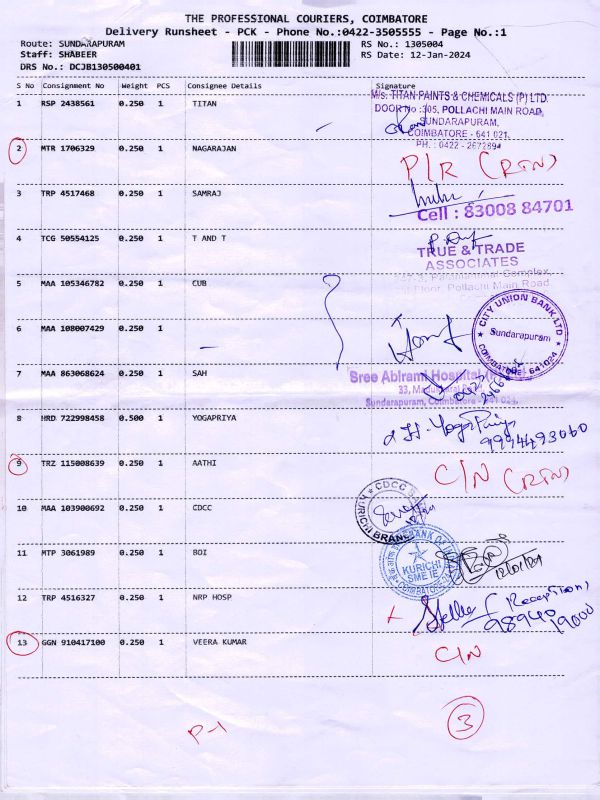 THE PROFESSIONAL COURIERS, COIMBATORE
Delivery Runsheet - PCK - Phone No.:0422-3505555 - Page No.:1
Route: SUNDARAPURAM RS No.: 1305004
Staff: SHABEER RS Date: 12-Jan-2024
DRS No.: DCJB130500401
S No Consignment No Weight PCS Consignee Details Signature
1 RSP 2438561 0.250 1 TITAN
M/s. TITAN PAINTS & CHEMICALS (P) LTD.
DOOR No :305, POLLACHI MAIN ROAD,
SUNDARAPURAM,
COIMBATORE - 641 021.
PH. : 0422 - 2672694
2 MTR 1706329 0.250 1 NAGARAJAN
P/R (RTN)
3 TRP 4517468 0.250 1 SAMRAJ
Cell : 83008 84701
4 TCG 50554125 0.250 1 T AND T
TRUE & TRADE
ASSOCIATES
Pollachi Main Road
5 MAA 105346782 0.250 1 CUB
6 MAA 108007429 0.250 1
CITY UNION BANK LTD
Sundarapuram
COIMBATORE - 641024
7 MAA 863068624 0.250 1 SAH
Sree Abirami Hospital
33, Madukkarai Road
Sundarapuram, Coimbatore - 641 024.
8 HRD 722998458 0.500 1 YOGAPRIYA
9994493060
9 TRZ 115008639 0.250 1 AATHI
C/N (RTN)
10 MAA 103900692 0.250 1 CDCC
CDCC
KURICHI BRANCH
11 MTP 3061989 0.250 1 BOI
BANK OF INDIA
KURICHI
SME
12/01/24
12 TRP 4516327 0.250 1 NRP HOSP
Reception
98940 19000
13 GGN 910417100 0.250 1 VEERA KUMAR
C/N
3
P-1